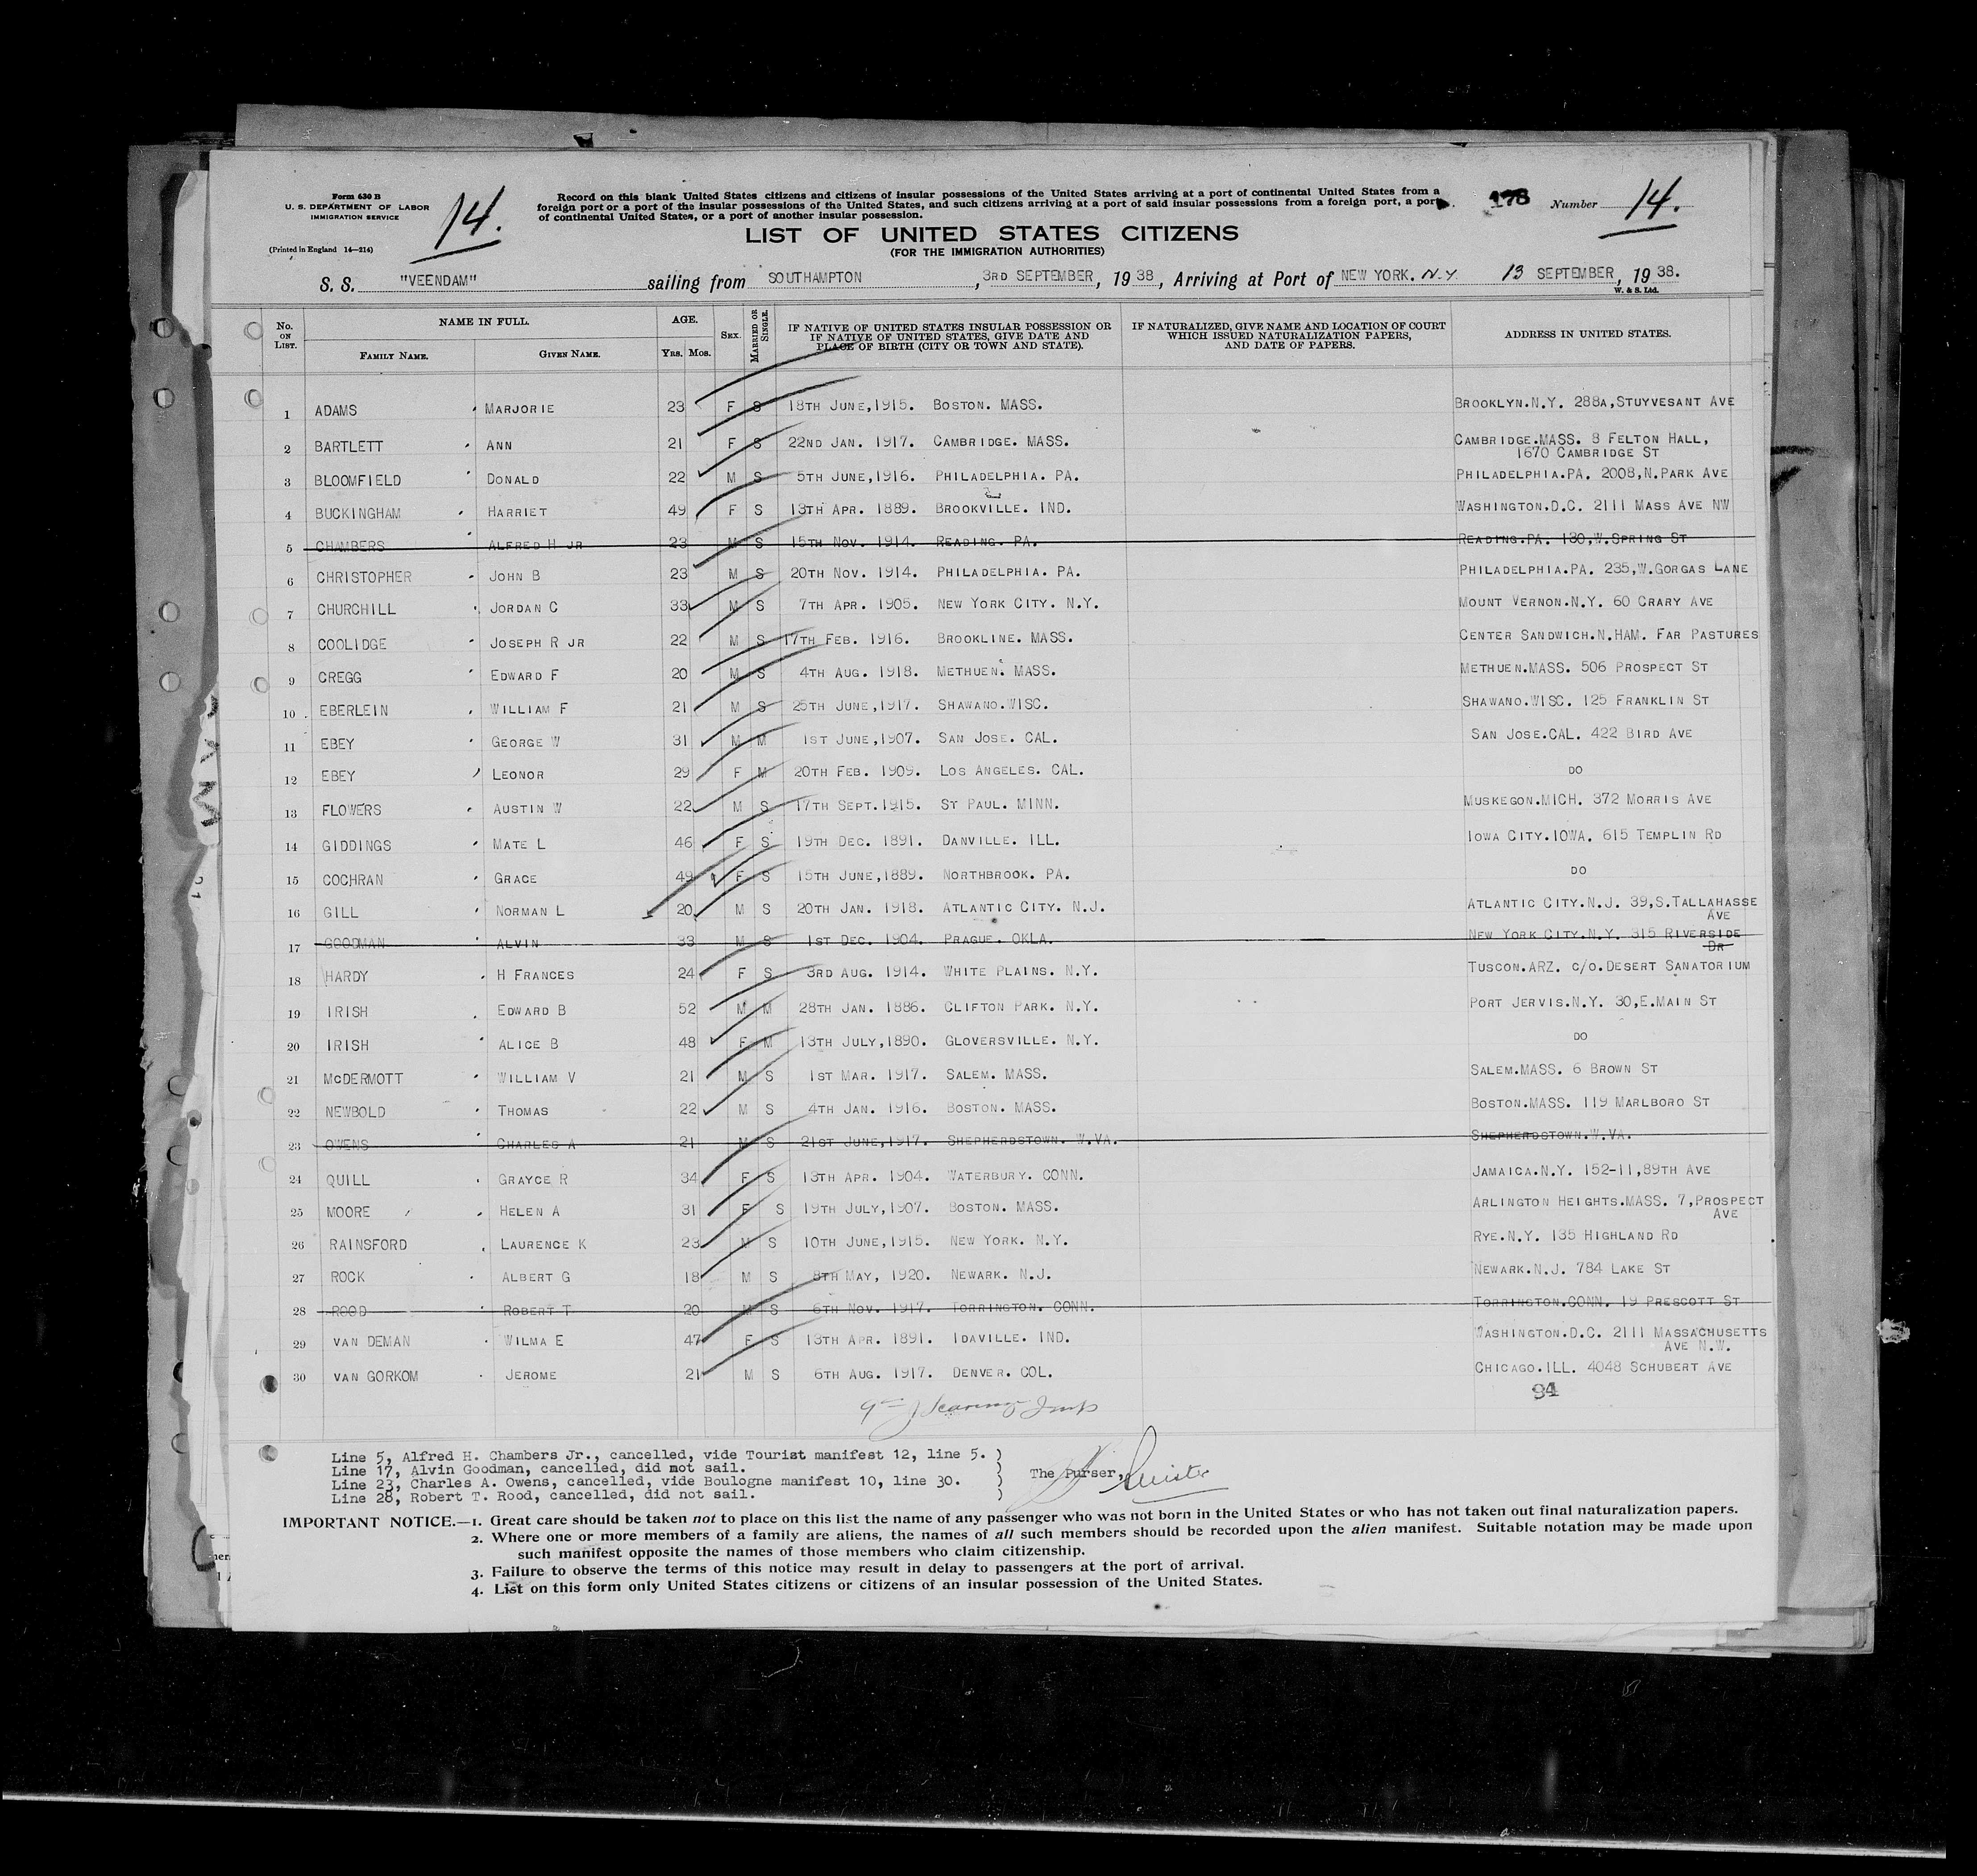 Form 630 B
U. S. DEPARTMENT OF LABOR
IMMIGRATION SERVICE
(Printed in England 14—214)
14.
Record on this blank United States citizens and citizens of insular possessions of the United States arriving at a port of continental United States from a
foreign port or a port of the insular possessions of the United States, and such citizens arriving at a port of said insular possessions from a foreign port, a port
of continental United States, or a port of another insular possession.
178 Number 14.
LIST OF UNITED STATES CITIZENS
(FOR THE IMMIGRATION AUTHORITIES)
S. S. "VEENDAM" sailing from SOUTHAMPTON, 3RD SEPTEMBER, 1938, Arriving at Port of NEW YORK. N.Y. 13 SEPTEMBER, 1938.
W. & S. Ltd.
No. ON LIST. NAME IN FULL. FAMILY NAME. GIVEN NAME. AGE. Yrs. Mos. SEX. MARRIED OR SINGLE. IF NATIVE OF UNITED STATES INSULAR POSSESSION OR IF NATIVE OF UNITED STATES, GIVE DATE AND PLACE OF BIRTH (CITY OR TOWN AND STATE). IF NATURALIZED, GIVE NAME AND LOCATION OF COURT WHICH ISSUED NATURALIZATION PAPERS, AND DATE OF PAPERS. ADDRESS IN UNITED STATES.
1 ADAMS MARJORIE 23 F S 18TH JUNE,1915. BOSTON. MASS. BROOKLYN.N.Y. 288A,STUYVESANT AVE
2 BARTLETT ANN 21 F S 22ND JAN. 1917. CAMBRIDGE. MASS. CAMBRIDGE.MASS. 8 FELTON HALL,
1670 CAMBRIDGE ST
3 BLOOMFIELD DONALD 22 M S 5TH JUNE,1916. PHILADELPHIA. PA. PHILADELPHIA.PA. 2008,N.PARK AVE
4 BUCKINGHAM HARRIET 49 F S 13TH APR. 1889. BROOKVILLE. IND. WASHINGTON.D.C. 2111 MASS AVE NW
5 CHAMBERS ALFRED H JR 23 M S 15TH NOV. 1914. READING. PA. READING.PA. 130,W.SPRING ST
6 CHRISTOPHER JOHN B 23 M S 20TH NOV. 1914. PHILADELPHIA. PA. PHILADELPHIA.PA. 235,W.GORGAS LANE
7 CHURCHILL JORDAN C 33 M S 7TH APR. 1905. NEW YORK CITY. N.Y. MOUNT VERNON.N.Y. 60 CRARY AVE
8 COOLIDGE JOSEPH R JR 22 M S 17TH FEB. 1916. BROOKLINE. MASS. CENTER SANDWICH.N.HAM. FAR PASTURES
9 CREGG EDWARD F 20 M S 4TH AUG. 1918. METHUEN. MASS. METHUEN.MASS. 506 PROSPECT ST
10 EBERLEIN WILLIAM F 21 M S 25TH JUNE,1917. SHAWANO.WISC. SHAWANO.WISC. 125 FRANKLIN ST
11 EBEY GEORGE W 31 M M 1ST JUNE,1907. SAN JOSE. CAL. SAN JOSE.CAL. 422 BIRD AVE
12 EBEY LEONOR 29 F M 20TH FEB. 1909. LOS ANGELES. CAL. DO
13 FLOWERS AUSTIN W 22 M S 17TH SEPT.1915. ST PAUL. MINN. MUSKEGON.MICH. 372 MORRIS AVE
14 GIDDINGS MATE L 46 F S 19TH DEC. 1891. DANVILLE. ILL. IOWA CITY.IOWA. 615 TEMPLIN RD
15 COCHRAN GRACE 49 F S 15TH JUNE,1889. NORTHBROOK. PA. DO
16 GILL NORMAN L 20 M S 20TH JAN. 1918. ATLANTIC CITY. N.J. ATLANTIC CITY.N.J. 39,S.TALLAHASSE
AVE
17 GOODMAN ALVIN 33 M S 1ST DEC. 1904. PRAGUE. OKLA. NEW YORK CITY.N.Y. 315 RIVERSIDE
DR
18 HARDY H FRANCES 24 F S 3RD AUG. 1914. WHITE PLAINS. N.Y. TUSCON.ARZ. C/O.DESERT SANATORIUM
19 IRISH EDWARD B 52 M M 28TH JAN. 1886. CLIFTON PARK. N.Y. PORT JERVIS.N.Y. 30,E.MAIN ST
20 IRISH ALICE B 48 F M 13TH JULY,1890. GLOVERSVILLE. N.Y. DO
21 McDERMOTT WILLIAM V 21 M S 1ST MAR. 1917. SALEM. MASS. SALEM.MASS. 6 BROWN ST
22 NEWBOLD THOMAS 22 M S 4TH JAN. 1916. BOSTON. MASS. BOSTON.MASS. 119 MARLBORO ST
23 OWENS CHARLES A 21 M S 21ST JUNE,1917. SHEPHERDSTOWN. W.VA. SHEPHERDSTOWN.W.VA.
24 QUILL GRAYCE R 34 F S 13TH APR. 1904. WATERBURY. CONN. JAMAICA.N.Y. 152-11,89TH AVE
25 MOORE HELEN A 31 F S 19TH JULY,1907. BOSTON. MASS. ARLINGTON HEIGHTS.MASS. 7,PROSPECT
AVE
26 RAINSFORD LAURENCE K 23 M S 10TH JUNE,1915. NEW YORK. N.Y. RYE.N.Y. 135 HIGHLAND RD
27 ROCK ALBERT G 18 M S 8TH MAY, 1920. NEWARK. N.J. NEWARK.N.J. 784 LAKE ST
28 ROOD ROBERT T 20 M S 6TH NOV. 1917. TORRINGTON. CONN. TORRINGTON.CONN. 19 PRESCOTT ST
29 VAN DEMAN WILMA E 47 F S 13TH APR. 1891. IDAVILLE. IND. WASHINGTON.D.C. 2111 MASSACHUSETTS
AVE N.W.
30 VAN GORKOM JEROME 21 M S 6TH AUG. 1917. DENVER. COL. CHICAGO.ILL. 4048 SCHUBERT AVE
94
Line 5, Alfred H. Chambers Jr., cancelled, vide Tourist manifest 12, line 5. )
Line 17, Alvin Goodman, cancelled, did not sail. )
Line 23, Charles A. Owens, cancelled, vide Boulogne manifest 10, line 30. )
Line 28, Robert T. Rood, cancelled, did not sail. )
The Purser,
IMPORTANT NOTICE.—1. Great care should be taken not to place on this list the name of any passenger who was not born in the United States or who has not taken out final naturalization papers.
2. Where one or more members of a family are aliens, the names of all such members should be recorded upon the alien manifest. Suitable notation may be made upon
such manifest opposite the names of those members who claim citizenship.
3. Failure to observe the terms of this notice may result in delay to passengers at the port of arrival.
4. List on this form only United States citizens or citizens of an insular possession of the United States.